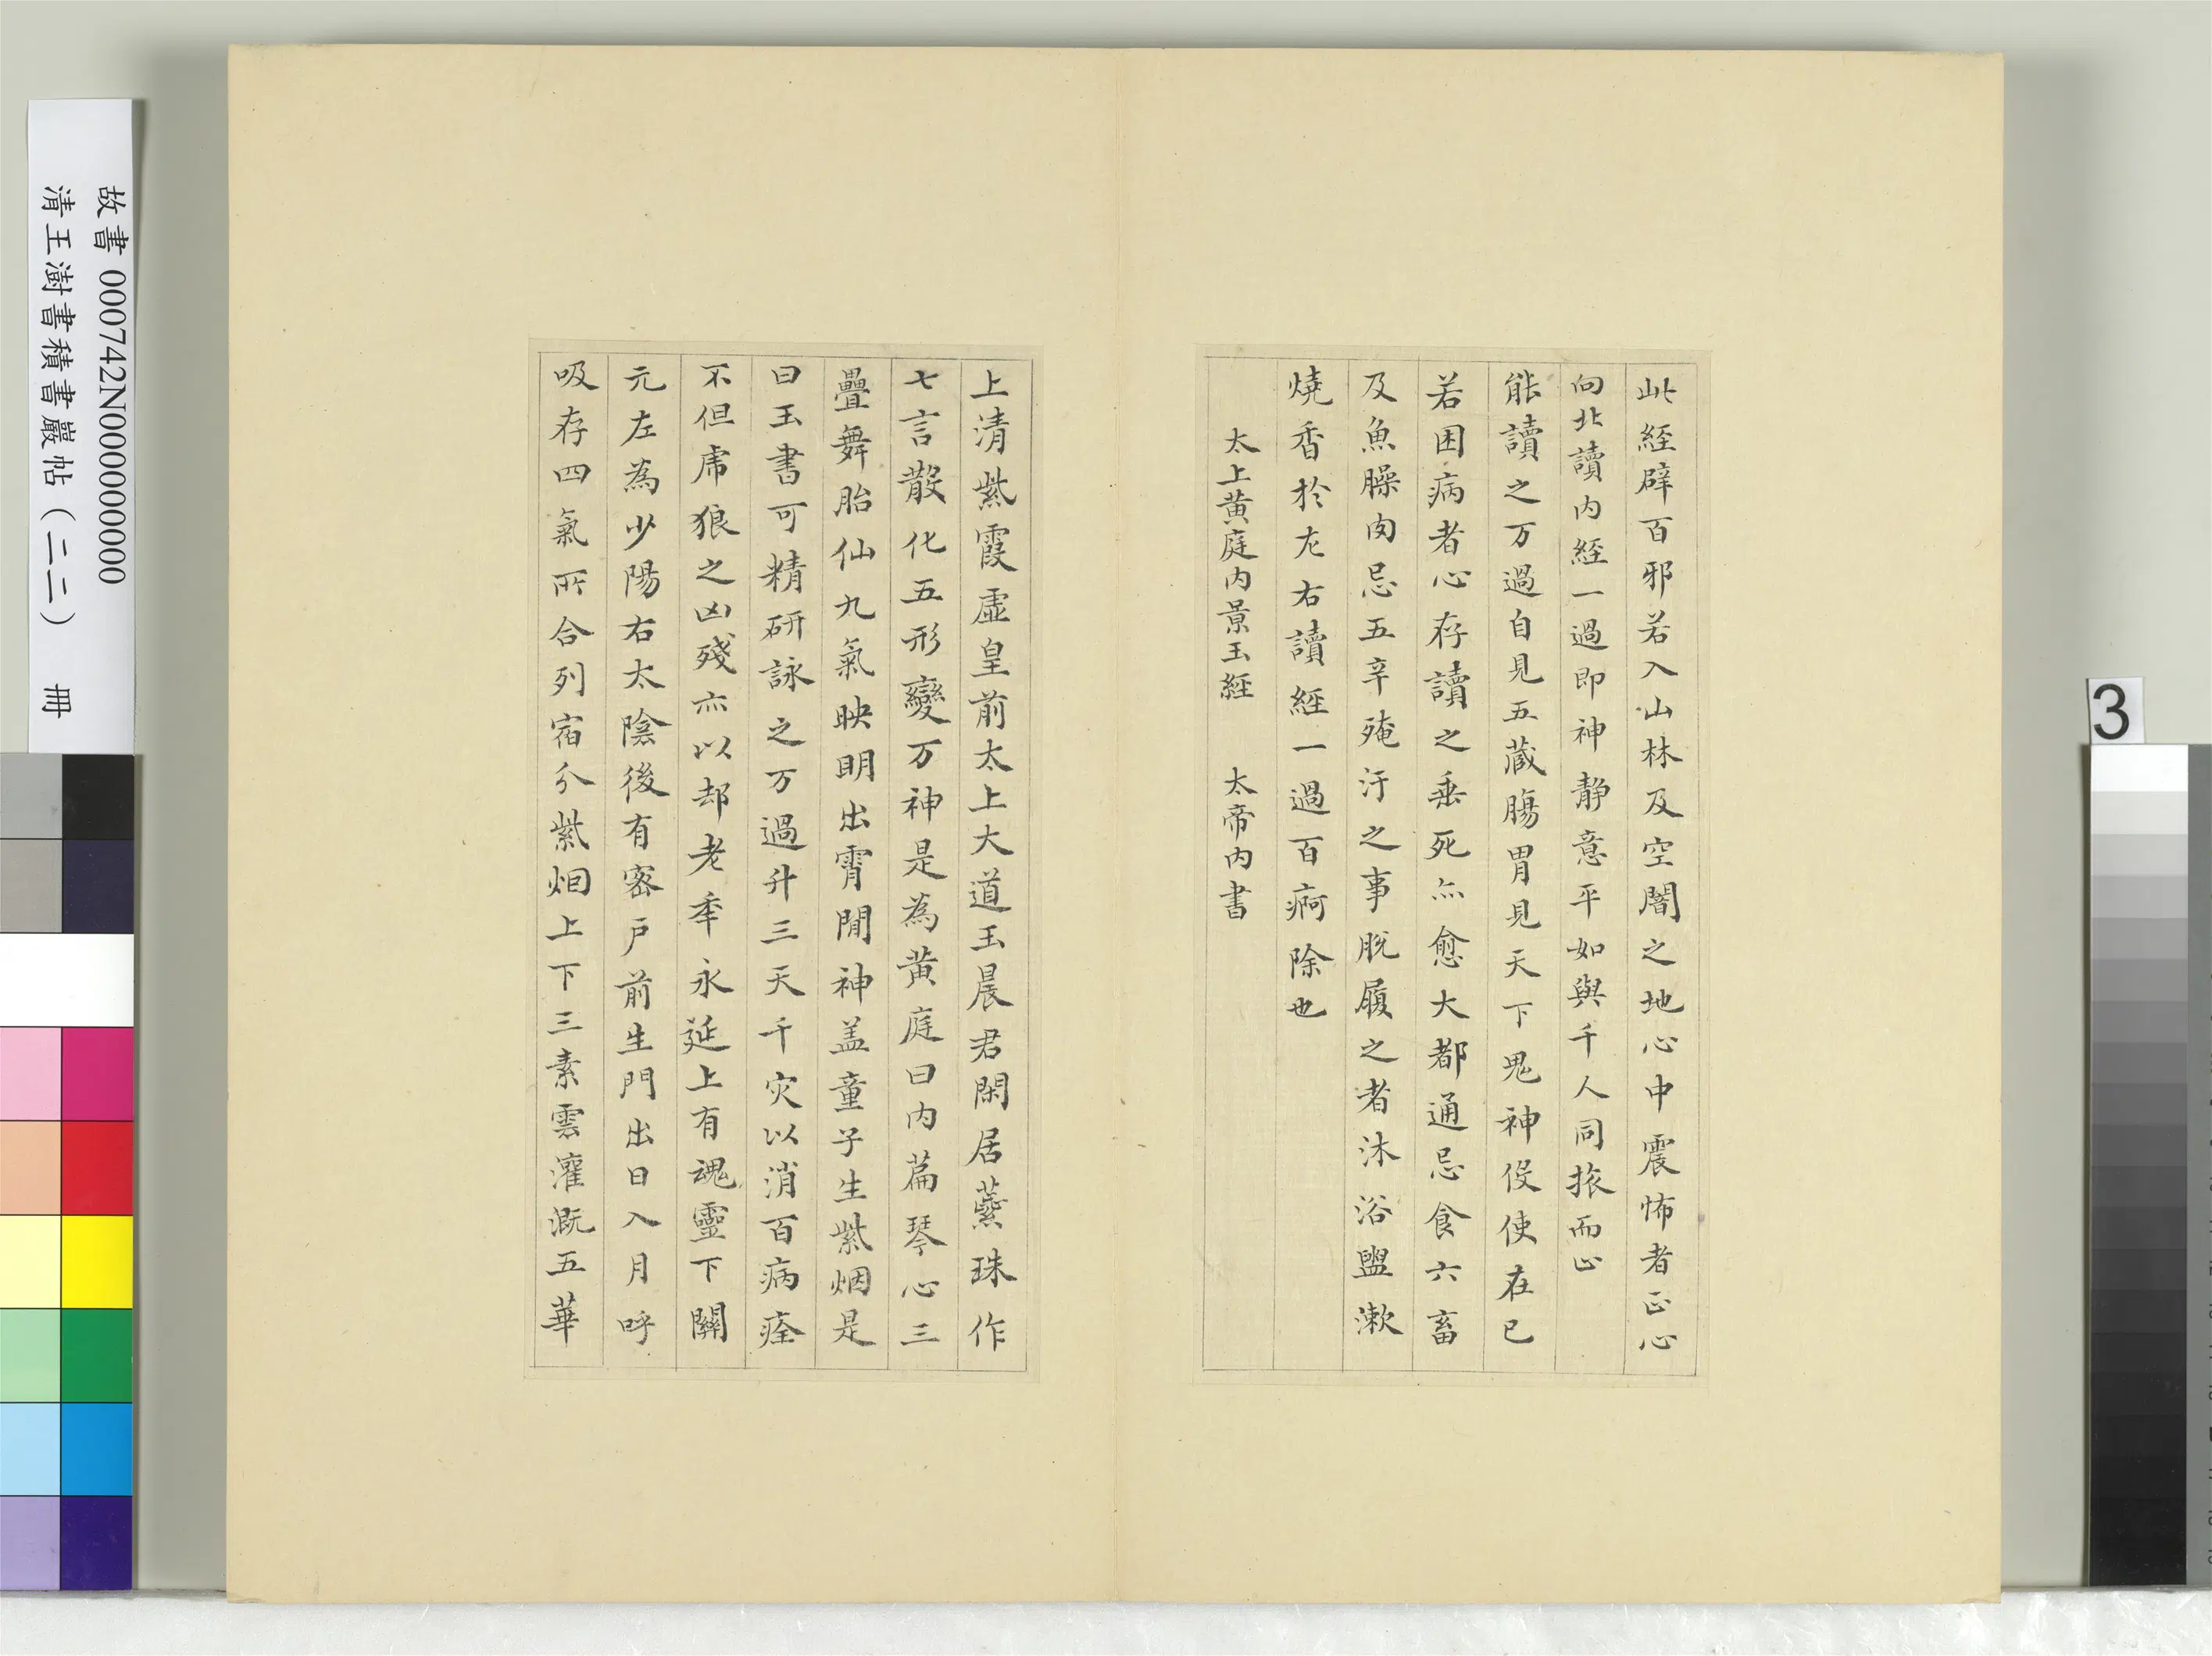 此經辟百邪若入山林及空闇之地心中震怖者正心
向北讀內經一過即神靜意平如與千人同旅而止
能讀之万過自見五藏腸胃見天下鬼神役使在已
若困病者心存讀之垂死亦愈大都通忌食六畜
及魚臊肉忌五辛殗汙之事脫履之者沐浴盥漱
燒香於左右讀經一過百痾除也
太上黃庭內景玉經 太帝內書
上清紫霞虛皇前太上大道玉晨君閑居蘂珠作
七言散化五形變万神是為黃庭曰內篇琴心三
疊舞胎仙九氣映明出霄閒神盖童子生紫烟是
曰玉書可精研詠之万過升三天千灾以消百病痊
不但虎狼之凶殘亦以却老秊永延上有魂靈下關
元左為少陽右太陰後有密戶前生門出日入月呼
吸存四氣所合列宿分紫烟上下三素雲灌溉五華
故書 000742N000000000
清王澍書積書巖帖（二二） 冊
3